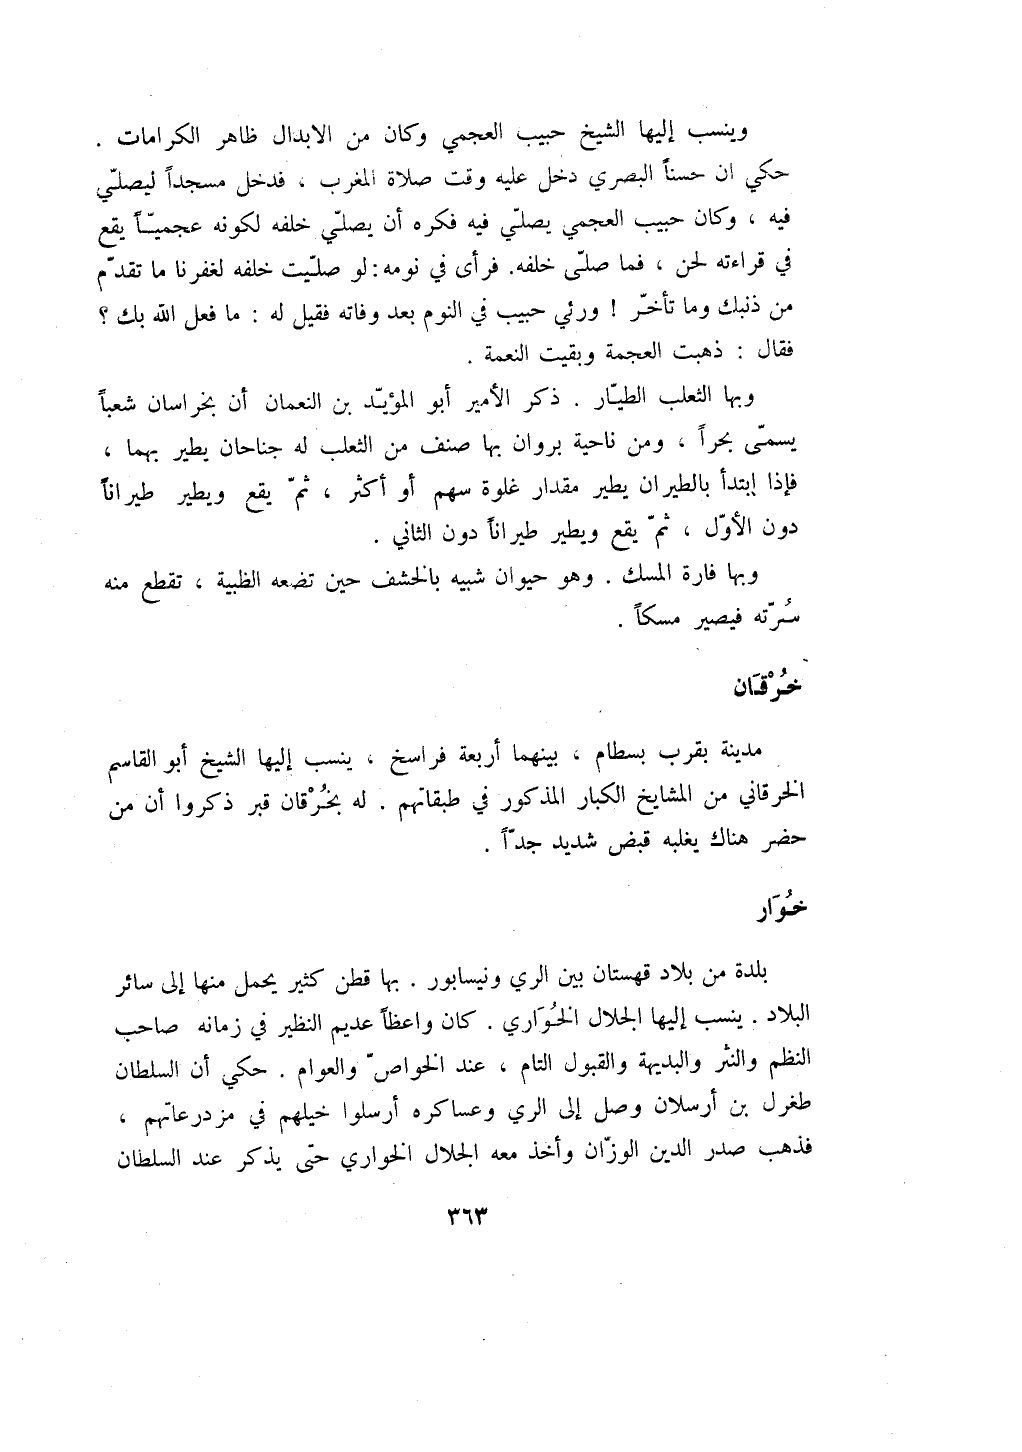 وينسب إليها الشيخ حبيب العجمي وكان من الابدال ظاهر الكرامات .
حكي ان حسناً البصري دخل عليه وقت صلاة المغرب ، فدخل مسجداً ليصلّي
فيه ، وكان حبيب العجمي يصلّي فيه فكره أن يصلّي خلفه لكونه عجميّاً يقع
في قراءته لحن ، فما صلّى خلفه. فرأى في نومه: لو صلّيت خلفه لغفرنا ما تقدّم
من ذنبك وما تأخّر ! ورئي حبيب في النوم بعد وفاته فقيل له : ما فعل الله بك ؟
فقال : ذهبت العجمة وبقيت النعمة .
وبها الثعلب الطيّار . ذكر الأمير أبو المؤيّد بن النعمان أن بخراسان شعباً
يسمّى بحراً ، ومن ناحية بروان بها صنف من الثعلب له جناحان يطير بهما ،
فإذا إبتدأ بالطيران يطير مقدار غلوة سهم أو أكثر ، ثمّ يقع ويطير طيراناً
دون الأوّل ، ثمّ يقع ويطير طيراناً دون الثاني .
وبها فارة المسك . وهو حيوان شبيه بالخشف حين تضعه الظبية ، تقطع منه
سُرّته فيصير مسكاً .
خُرْقَان
مدينة بقرب بسطام ، بينهما أربعة فراسخ ، ينسب إليها الشيخ أبو القاسم
الخرقاني من المشايخ الكبار المذكور في طبقاتهم . له بخُرْقان قبر ذكروا أن من
حضر هناك يغلبه قبض شديد جدّاً .
خُوَار
بلدة من بلاد قهستان بين الري ونيسابور . بها قطن كثير يحمل منها إلى سائر
البلاد . ينسب إليها الجلال الخُوَاري . كان واعظاً عديم النظير في زمانه صاحب
النظم والنثر والبديهة والقبول التام ، عند الخواصّ والعوام . حكي أن السلطان
طغرل بن أرسلان وصل إلى الري وعساكره أرسلوا خيلهم في مزدرعاتهم ،
فذهب صدر الدين الوزّان وأخذ معه الجلال الخواري حتّى يذكر عند السلطان
٣٦٣